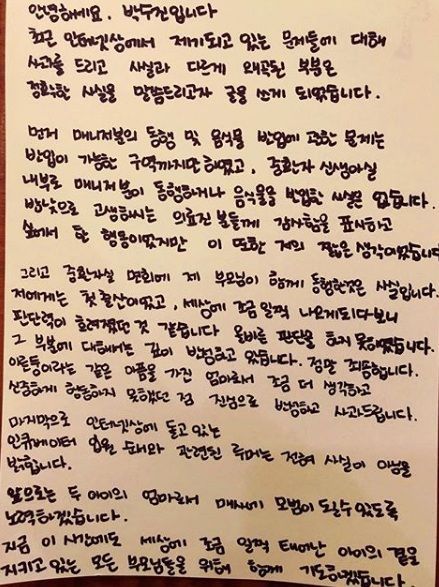 안녕하세요. 박수진입니다
최근 인터넷상에서 제기되고 있는 문제들에 대해
사과를 드리고 사실과 다르게 왜곡된 부분은
정확한 사실을 말씀드리고자 글을 쓰게 되었습니다.
먼저 매니저분의 동행 및 음식물 반입에 관한 문제는
반입이 가능한 구역까지만 하였고, 중환자 신생아실
내부로 매니저분이 동행하거나 음식물을 반입한 사실은 없습니다.
밤낮으로 고생하시는 의료진 분들께 감사함을 표시하고
싶어서 한 행동이었지만 이 또한 저의 짧은 생각이었습니다
그리고 중환자실 면회에 제 부모님이 함께 동행한것은 사실입니다.
저에게는 첫 출산이었고, 세상에 조금 일찍 나오게되다보니
판단력이 흐려졌던 것 같습니다 올바른 판단을 하지 못하였습니다.
그 부분에 대해서는 깊이 반성하고 있습니다. 정말 죄송합니다.
이른둥이라는 같은 아픔을 가진 엄마로서 조금 더 생각하고
신중하게 행동하지 못했던 점 진심으로 반성하고 사과드립니다.
마지막으로 인터넷상에 돌고있는
인큐베이터 입원 순서와 관련된 루머는 전혀 사실이 아님을
밝힙니다.
앞으로는 두 아이의 엄마로서 매사에 모범이 되실수 있도록
노력하겠습니다.
지금 이 시간에도 세상에 조금 일찍 태어난 아이의 곁을
지키고 있는 모든 부모님들을 위하여 함께 기도하겠습니다.